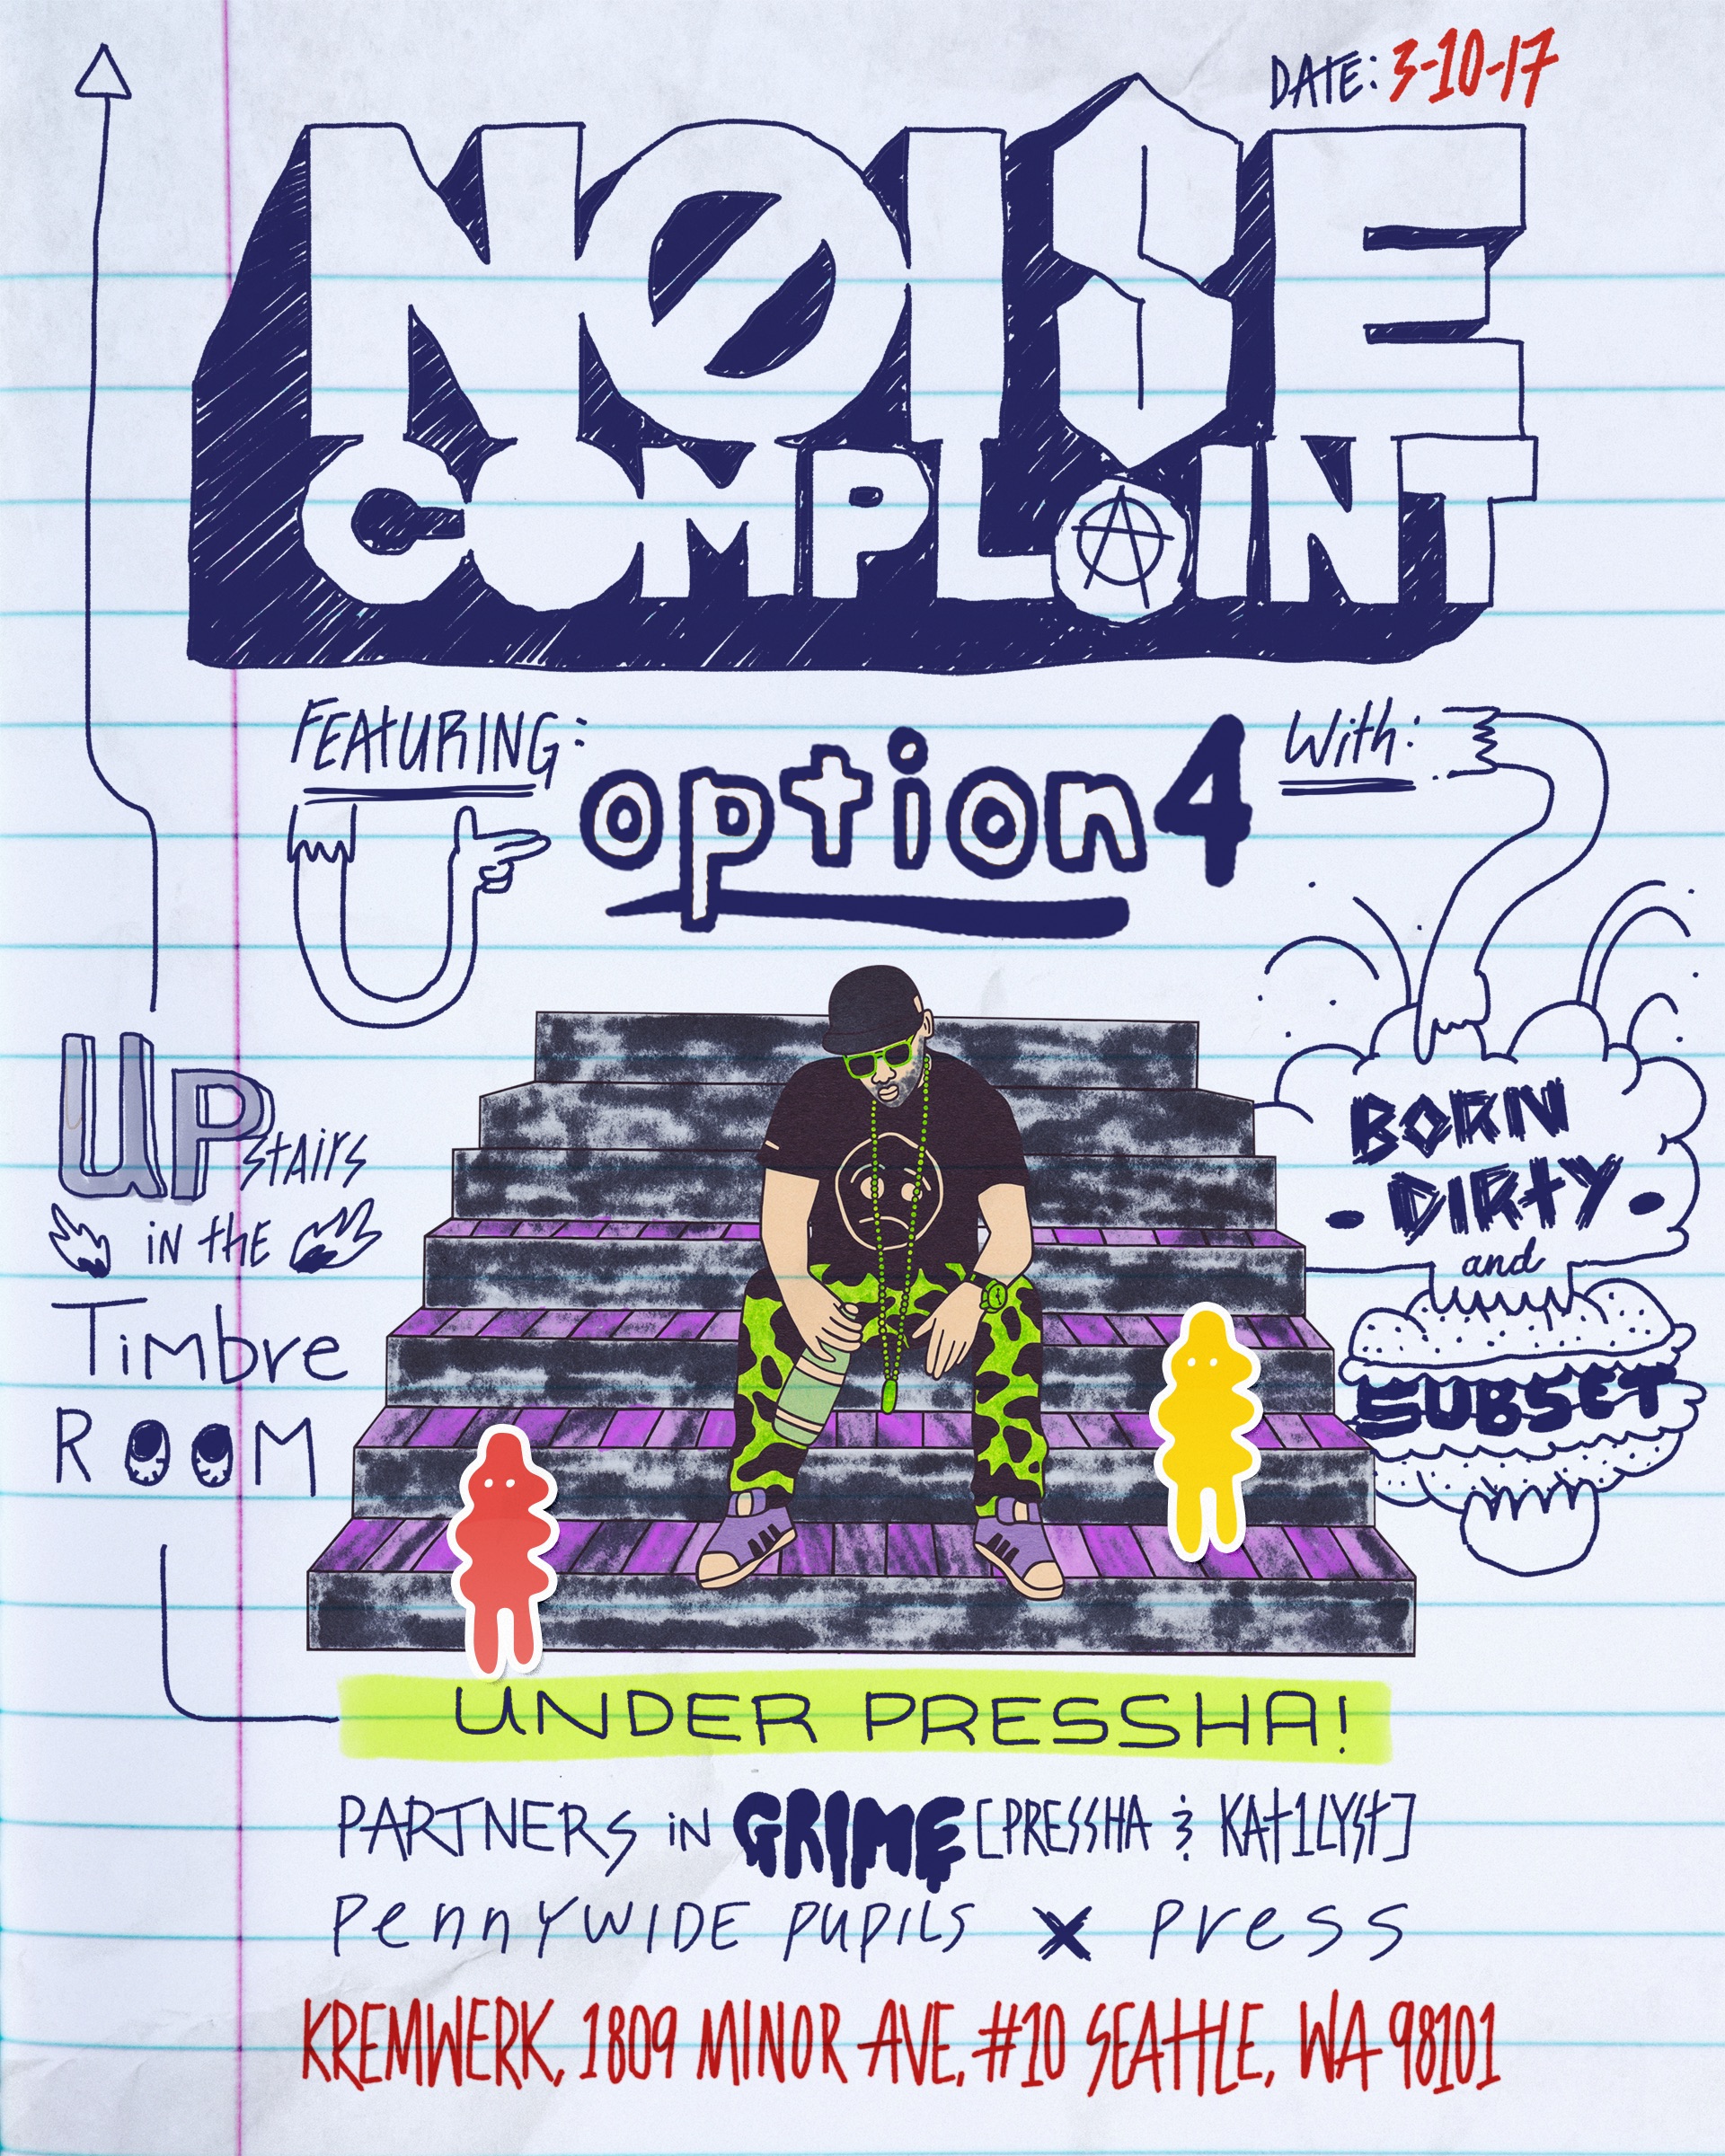 DATE: 3-10-17
NOISE
COMPLAINT
FEATURING:
option4
With:
BORN
DIRTY
and
SUBSET
UPstairs
in the
Timbre
ROOM
UNDER PRESSHA!
PARTNERS iN GRIME [PRESSHA & KAT1LYST]
PennyWIDE PUPILS x Press
KREMWERK, 1809 MINOR AVE, #10 SEATTLE, WA 98101